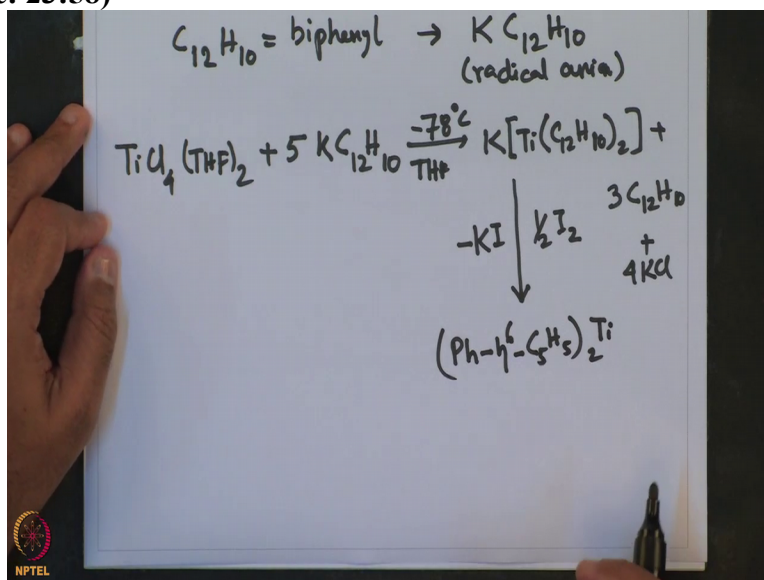 C₁₂H₁₀ = biphenyl → K C₁₂H₁₀
(radical anion)
TiCl₄(THF)₂ + 5 KC₁₂H₁₀ —-78°C / THF→ K[Ti(C₁₂H₁₀)₂] +
3 C₁₂H₁₀
+
4KCl
-KI ↓ ½ I₂
(Ph-η⁶-C₅H₅)₂Ti
NPTEL